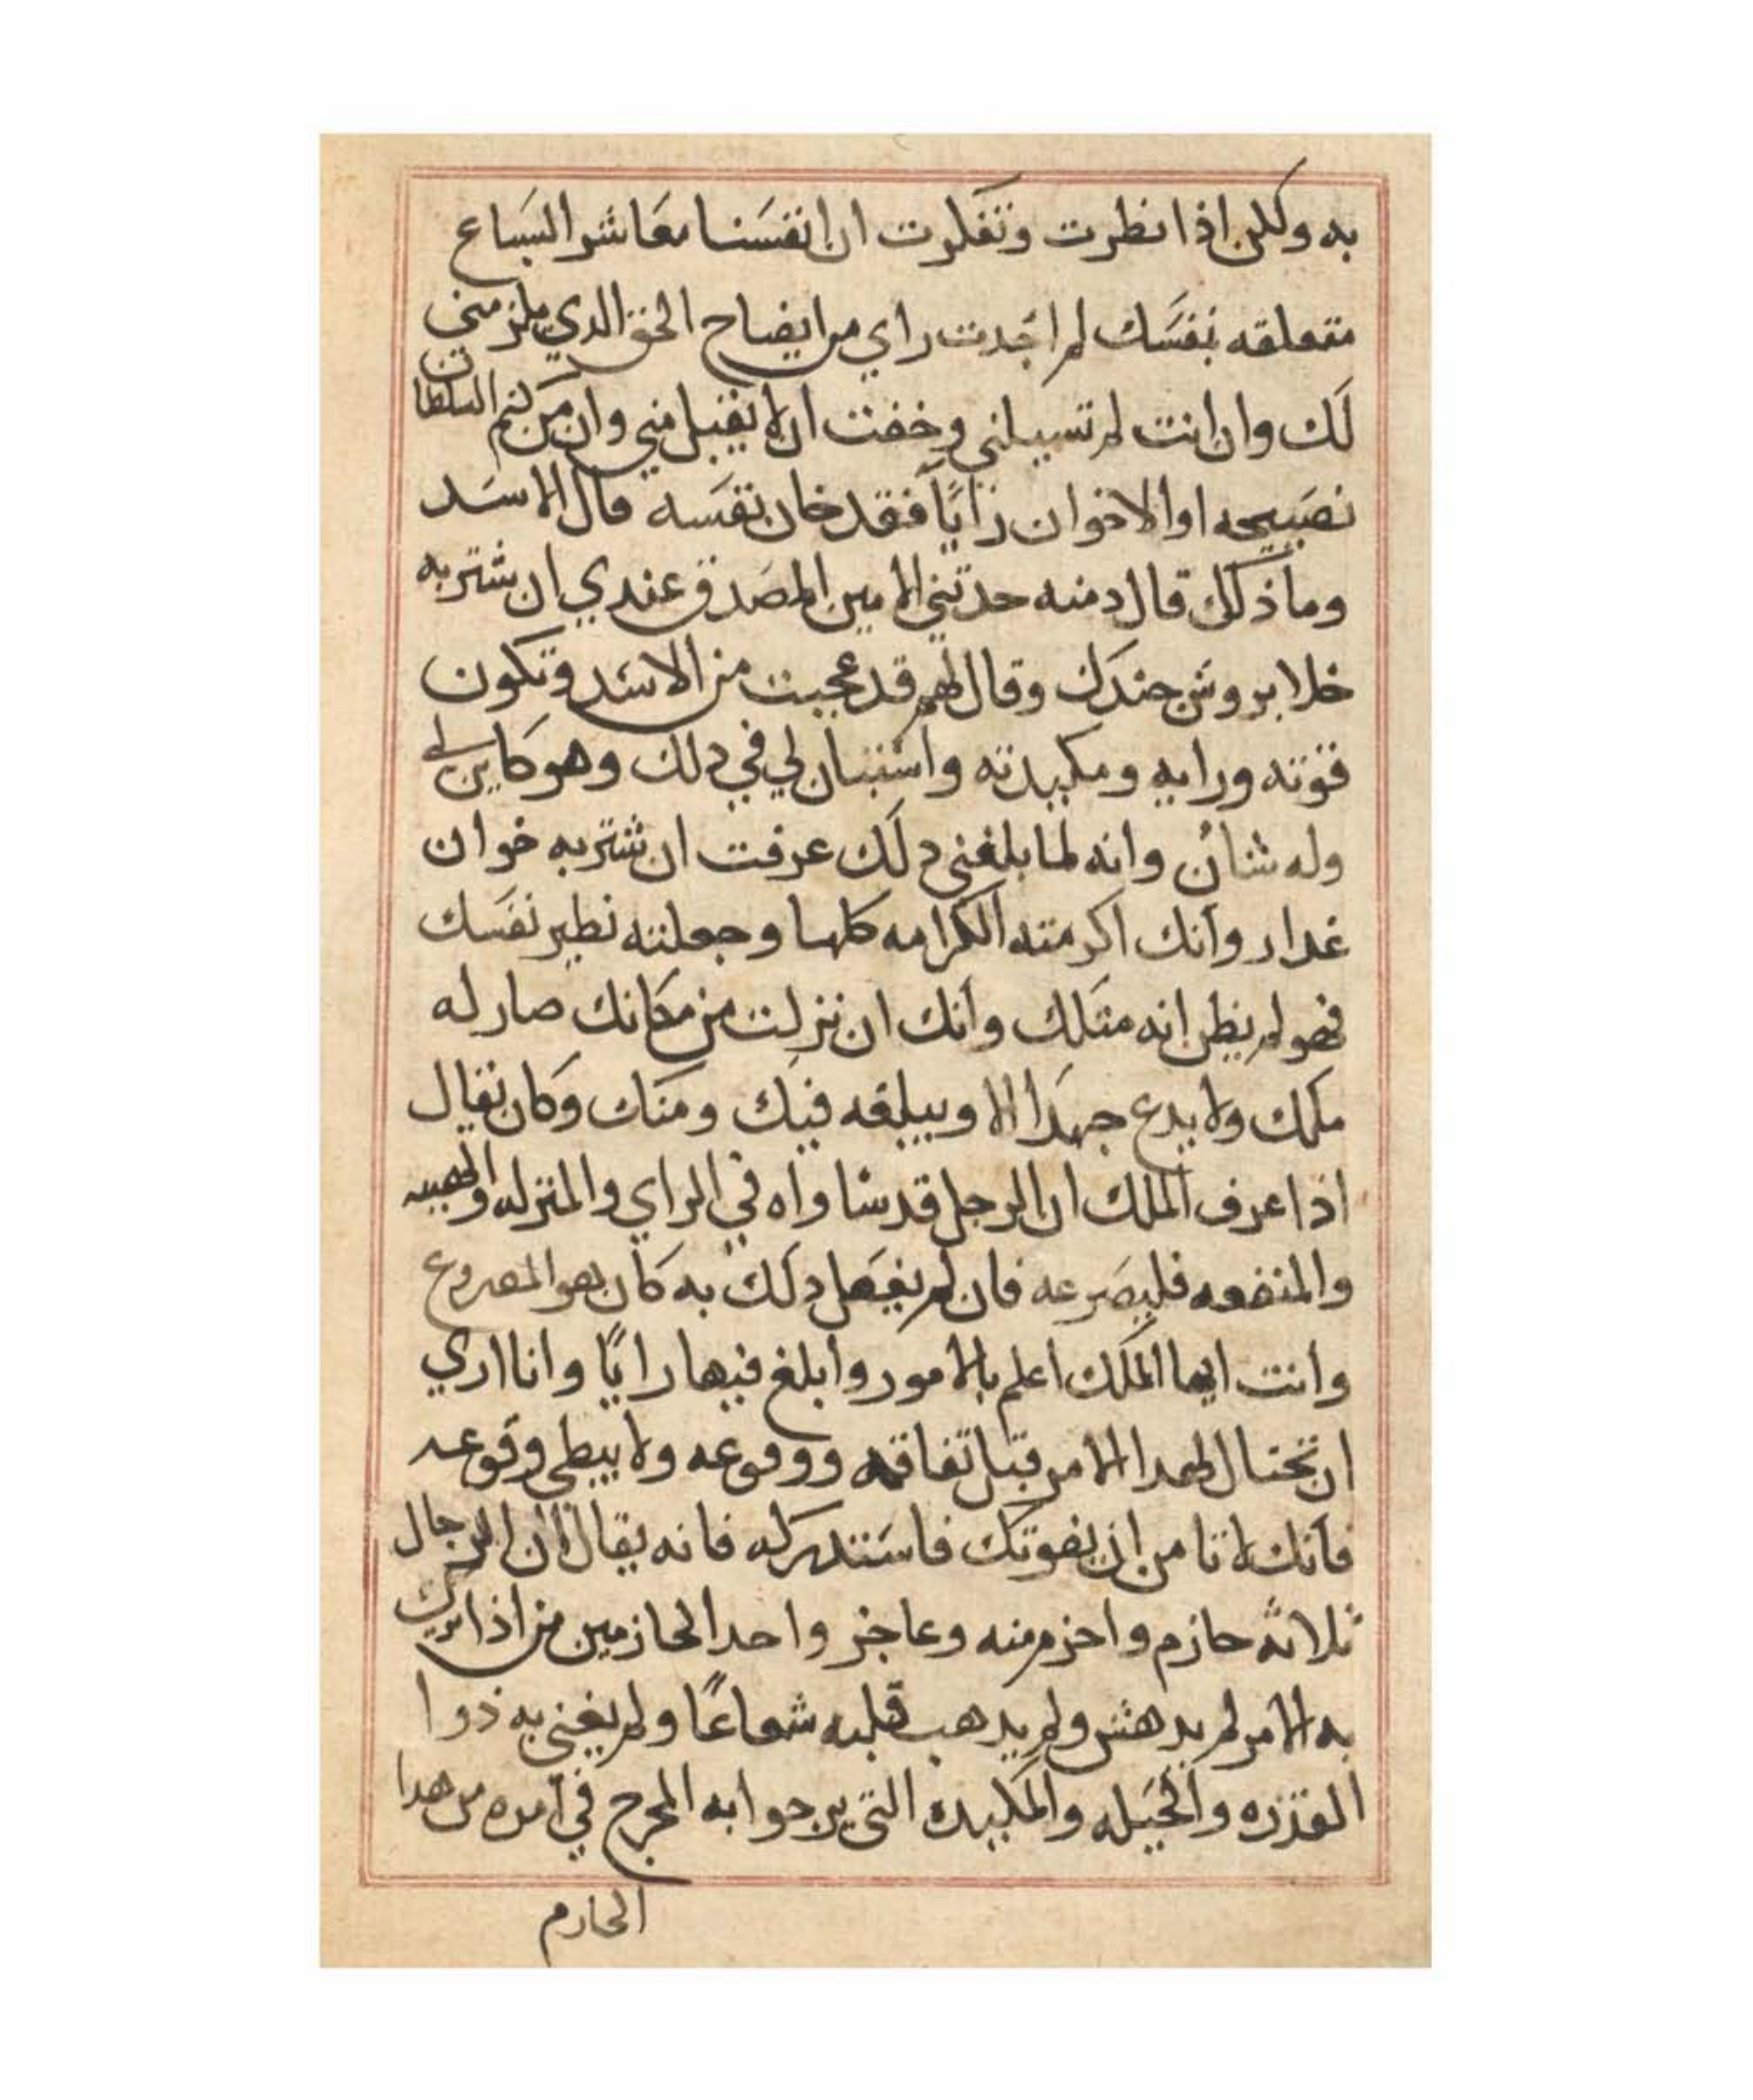 به ولكن اذا نظرت وتفكرت ان انفسنا معاشر السباع
متعلقه بنفسك لم اجدت راي من ايضاح الحق الدي يلزمني
لك وان انت لم تسيلني وخفت ان لا يقبل مني وان من كتم السلطان
نصيحه او الاخوان رايًا فقد خان نفسه قال الاسد
وما ذلك قال دمنه حدثني الامين المصدق عندي ان شتربه
خلا بروش جندك وقال لهم قد عجبت من الاسد وتكون
قوته ورايه ومكيدته واستبان لي في دلك وهو كاين لي
وله شان وانه لما بلغني دلك عرفت ان شتربه خوان
غدار وانك اكرمته الكرامه كلها وجعلته نطير نفسك
فهو لم يظن انه متلك وانك ان نزلت من مكانك صار له
ملكك ولا يدع جهدا الا ويبلغه فيك ومنك وكان يقال
اذا عرف الملك ان الرجل قد ساواه في الراي والمنزله والهيبه
والمنفعه فليصرعه فان لم يفعل دلك به كان هو المصروع
وانت ايها الملك اعلم بالامور وابلغ فيها رايًا وانا اري
ان تحتال لهدا الامر قبل تفاقمه ووقوعه ولا يبطي وقوعه
فانك لا تامن ان يفوتك فاستدركه فانه يقال ان الرجال
ثلاثه حازم واحزم منه وعاجز واحد الحازمين من اذا نزلت
به الامر لم يدهش ولم يدهب قلبه شعاعًا ولم يغني به ذوا
القدره والحيله والمكيده التي يرجوا به المخرج في امره من هدا
الحازم